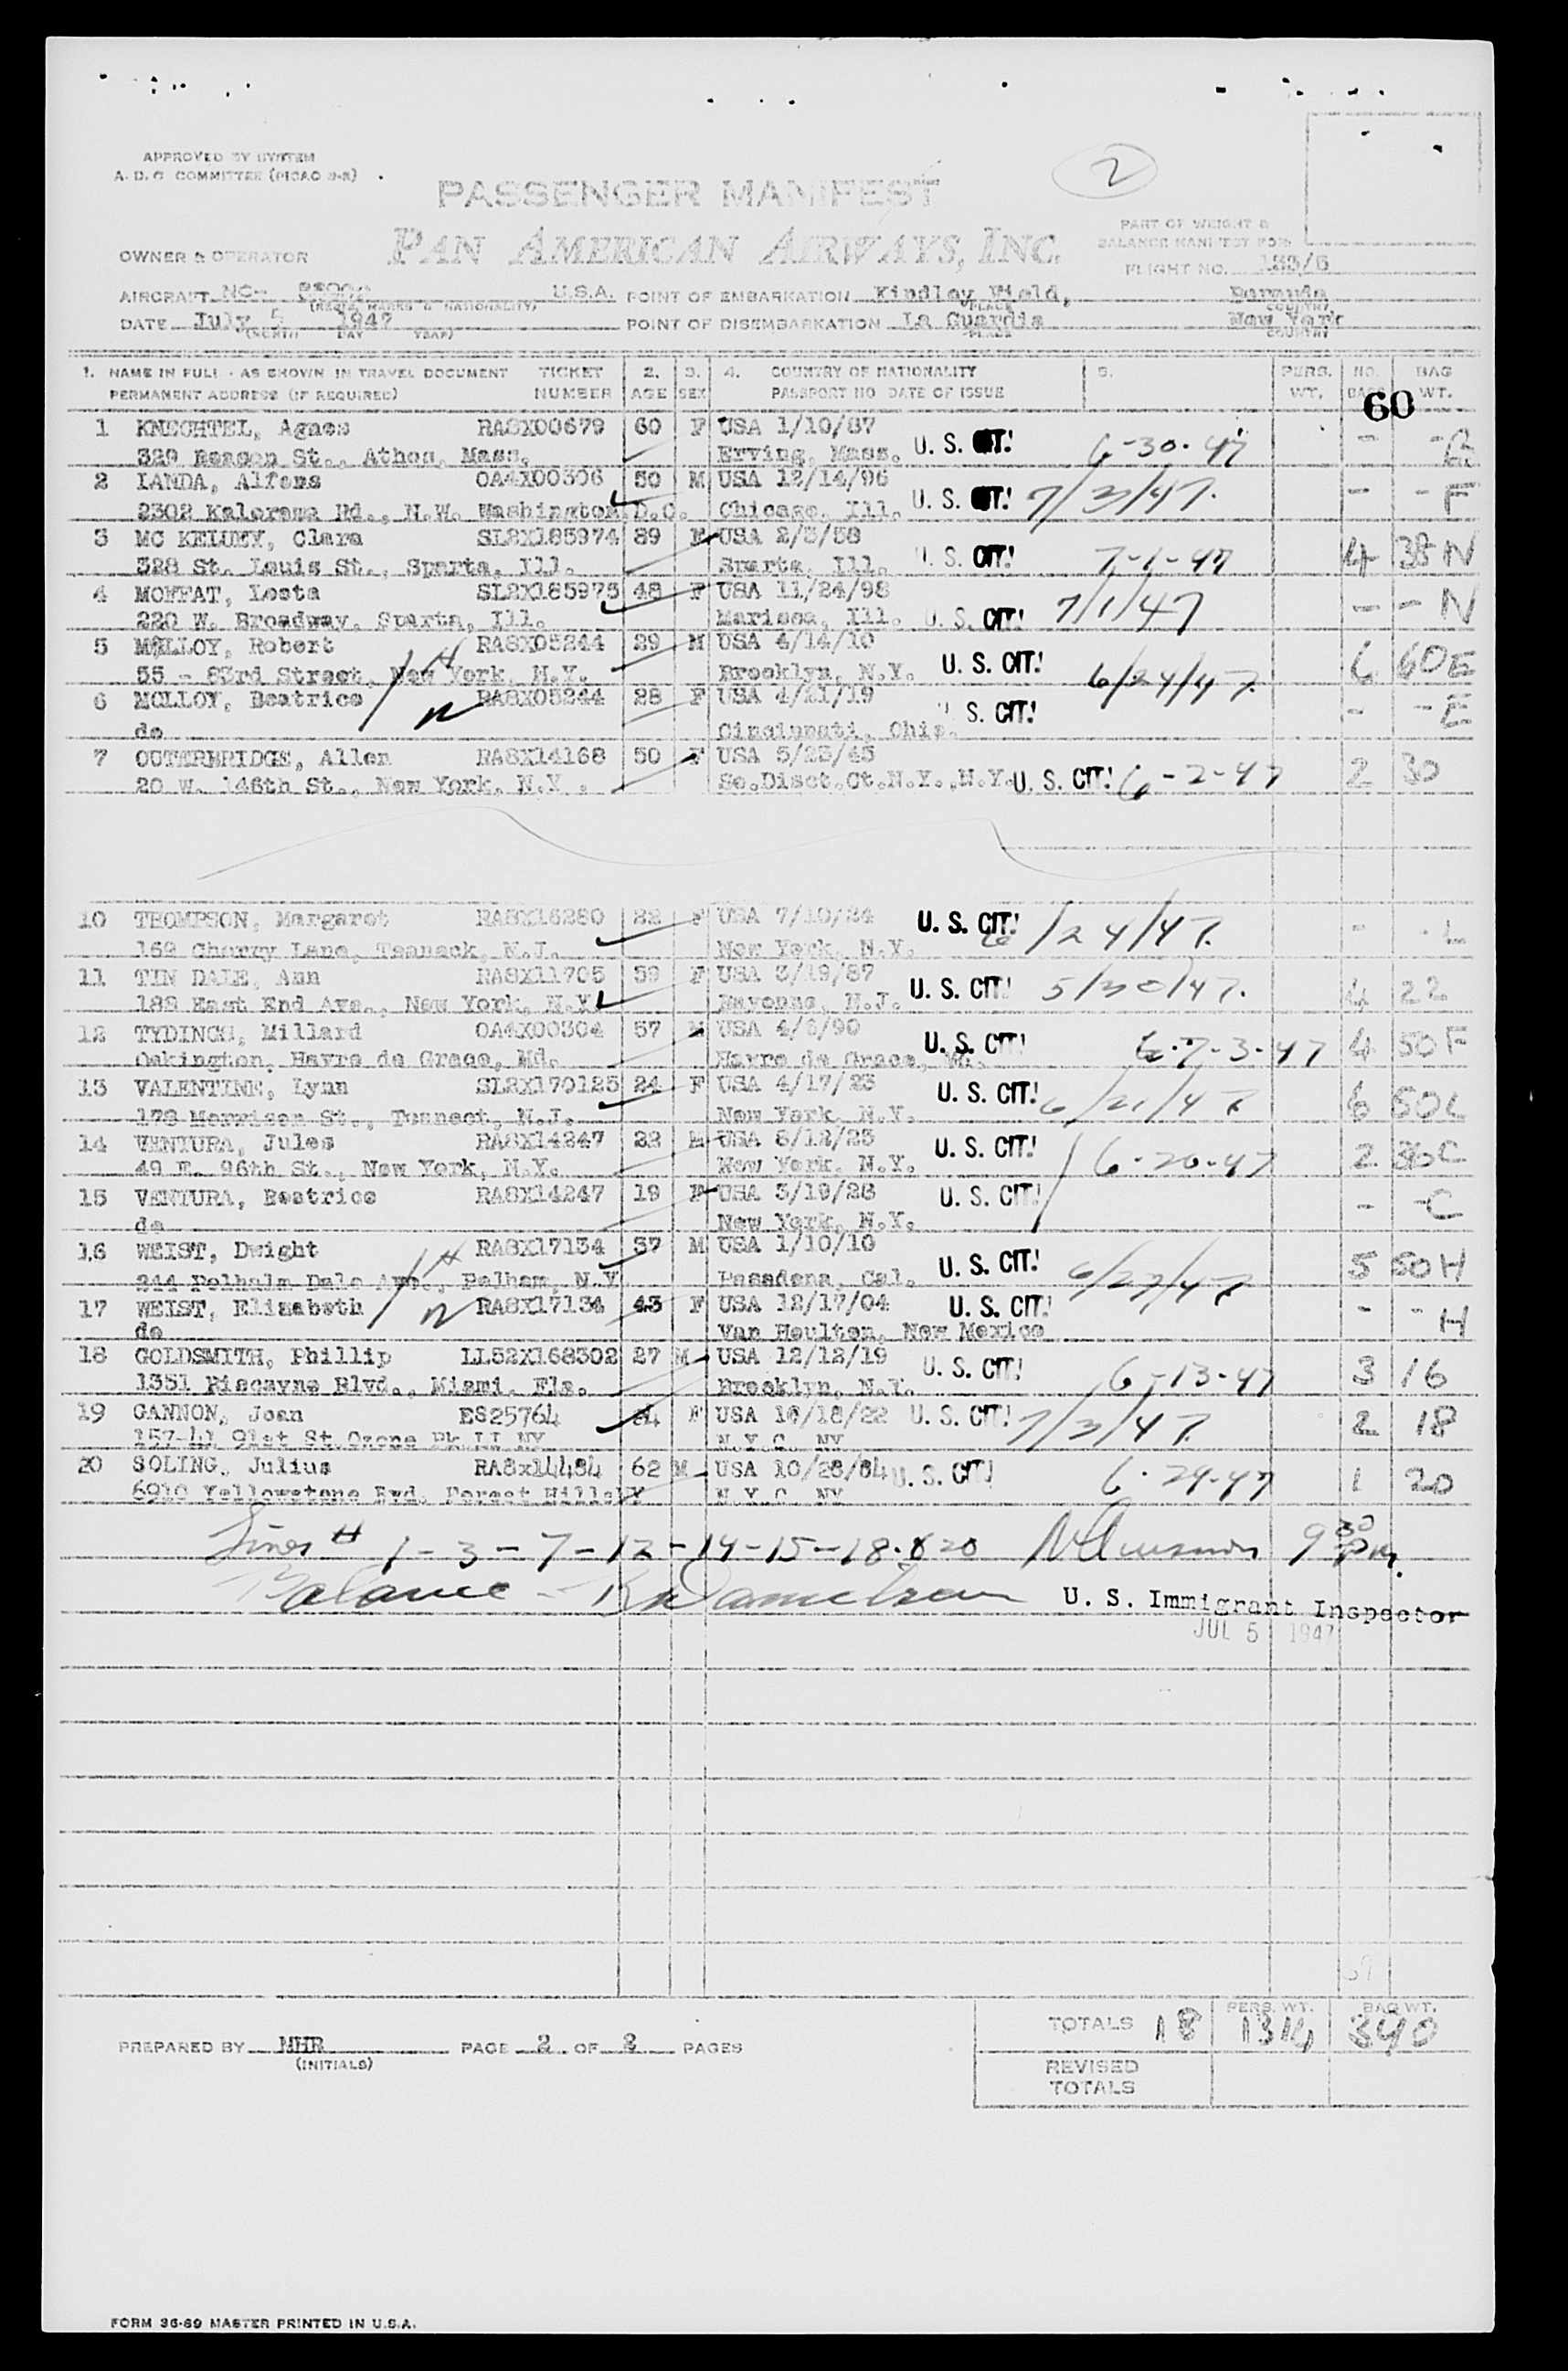 APPROVED BY SYSTEM
A. D. O COMMITTEE (PICAO
2
PASSENGER MANIFEST
PART OF WEIGHT &
BALANCE MANIFEST FOR
OWNER & OPERATOR PAN AMERICAN AIRWAYS, INC.
FLIGHT NO.
AIRCRAFT NC- U.S.A. POINT OF EMBARKATION Kindley Field, Bermuda
(REG'N. MARKS & NATIONALITY) PLACE COUNTRY
DATE July 5 1947 POINT OF DISEMBARKATION La Guardia New York
(MONTH DAY YEAR) PLACE COUNTRY
1. NAME IN FULL - AS SHOWN IN TRAVEL DOCUMENT TICKET 2. 3. 4. COUNTRY OF NATIONALITY 5. PERS. NO. BAG
PERMANENT ADDRESS (IF REQUIRED) NUMBER AGE SEX PASSPORT NO DATE OF ISSUE WT. BAGS WT.
60
1 KNECHTEL, Agnes RA8X00679 60 F USA 1/10/87
329 St., Athol, Mass. Erving, Mass. U. S. CIT! 6-30-47 - -
2 LANDA, Alfons OA4X00306 50 M USA 12/14/96
2302 Kalorama Rd., N.W. Washington D.C. Chicago, Ill. U. S. CIT! 7/3/47. - - F
3 MC Clara SL2X185974 89 F USA
328 St. Louis St., Sparta, Ill. Sparta, Ill. U. S. CIT! 7-1-47 4 38 N
4 MOFFAT, SL2X185975 48 F USA 11/24/98
220 W. Broadway, Sparta, Ill. Marissa, Ill. U. S. CIT! 7/1/47 - - N
5 MOLLOY, Robert RA8X05244 29 M USA 4/14/10
55 - 83rd Street, New York, N.Y. Brooklyn, N.Y. U. S. CIT! 6/24/47 6 60 E
6 MOLLOY, Beatrice RA8X05244 28 F USA 4/21/19
do Cincinnati, Ohio. U. S. CIT! - - E
7 OUTERBRIDGE, Allen RA8X14168 50 F USA 5/23/45
20 W. 146th St., New York, N.Y. So.Disct.Ct.N.Y.,N.Y. U. S. CIT! 6-2-47 2 30
10 THOMPSON, Margaret RA8X16280 22 F USA 7/10/24
Cherry Lane, Teaneck, N.J. New York, N.Y. U. S. CIT! 6/24/47. - - L
11 TIN DALE, Ann RA8X11705 59 F USA 3/19/87
188 East End Ave., New York, N.Y. Bayonne, N.J. U. S. CIT! 5/30/47. 4 22
12 TYDINGS, Millard OA4X00304 57 M USA 4/6/90
Oakington, Havre de Grace, Md. Havre de Grace, Md. U. S. CIT! 7-3-47 4 50 F
13 VALENTINE, Lynn SL2X170125 24 F USA 4/17/23
178 Morrison St., Teaneck, N.J. New York, N.Y. U. S. CIT! 6/21/47 6 50 L
14 VENTURA, Jules RA8X14247 22 M USA 6/12/25
49 E. 96th St., New York, N.Y. New York, N.Y. U. S. CIT! 6-20-47 2 30 C
15 VENTURA, Beatrice RA8X14247 19 F USA 3/19/28
do New York, N.Y. U. S. CIT! - - C
16 WEIST, Dwight RA8X17134 37 M USA 1/10/10
244 Pelham Dale Ave., Pelham, N.Y. Pasadena, Cal. U. S. CIT! 6/27/47 5 50 H
17 WEIST, Elizabeth RA8X17134 43 F USA 12/17/04
do Van Houlten, New Mexico U. S. CIT! - - H
18 GOLDSMITH, Phillip LL52X168302 27 M USA 12/12/19
1351 Biscayne Blvd., Miami, Fla. Brooklyn, N.Y. U. S. CIT! 6-13-47 3 16
19 GANNON, Joan ES25764 24 F USA 10/18/22
157-41 91st St.Ozone Pk LI NY N.Y.C. NY U. S. CIT! 7/3/47. 2 18
20 SOLING, Julius RA8x14484 62 M USA 10/28/84
6910 Yellowstone Bvd. Forest Hills NY N.Y.C. NY U. S. CIT! 6-29-47 1 20
Lines # 1-3-7-12-14-15-18-&20 9 30 pm.
Balance -
U. S. Immigrant Inspector
JUL 5 1947
TOTALS 18 PERS. WT. 1314 BAG WT. 390
PREPARED BY MHR PAGE 2 OF 2 PAGES
(INITIALS)
REVISED
TOTALS
FORM 36-89 MASTER PRINTED IN U.S.A.